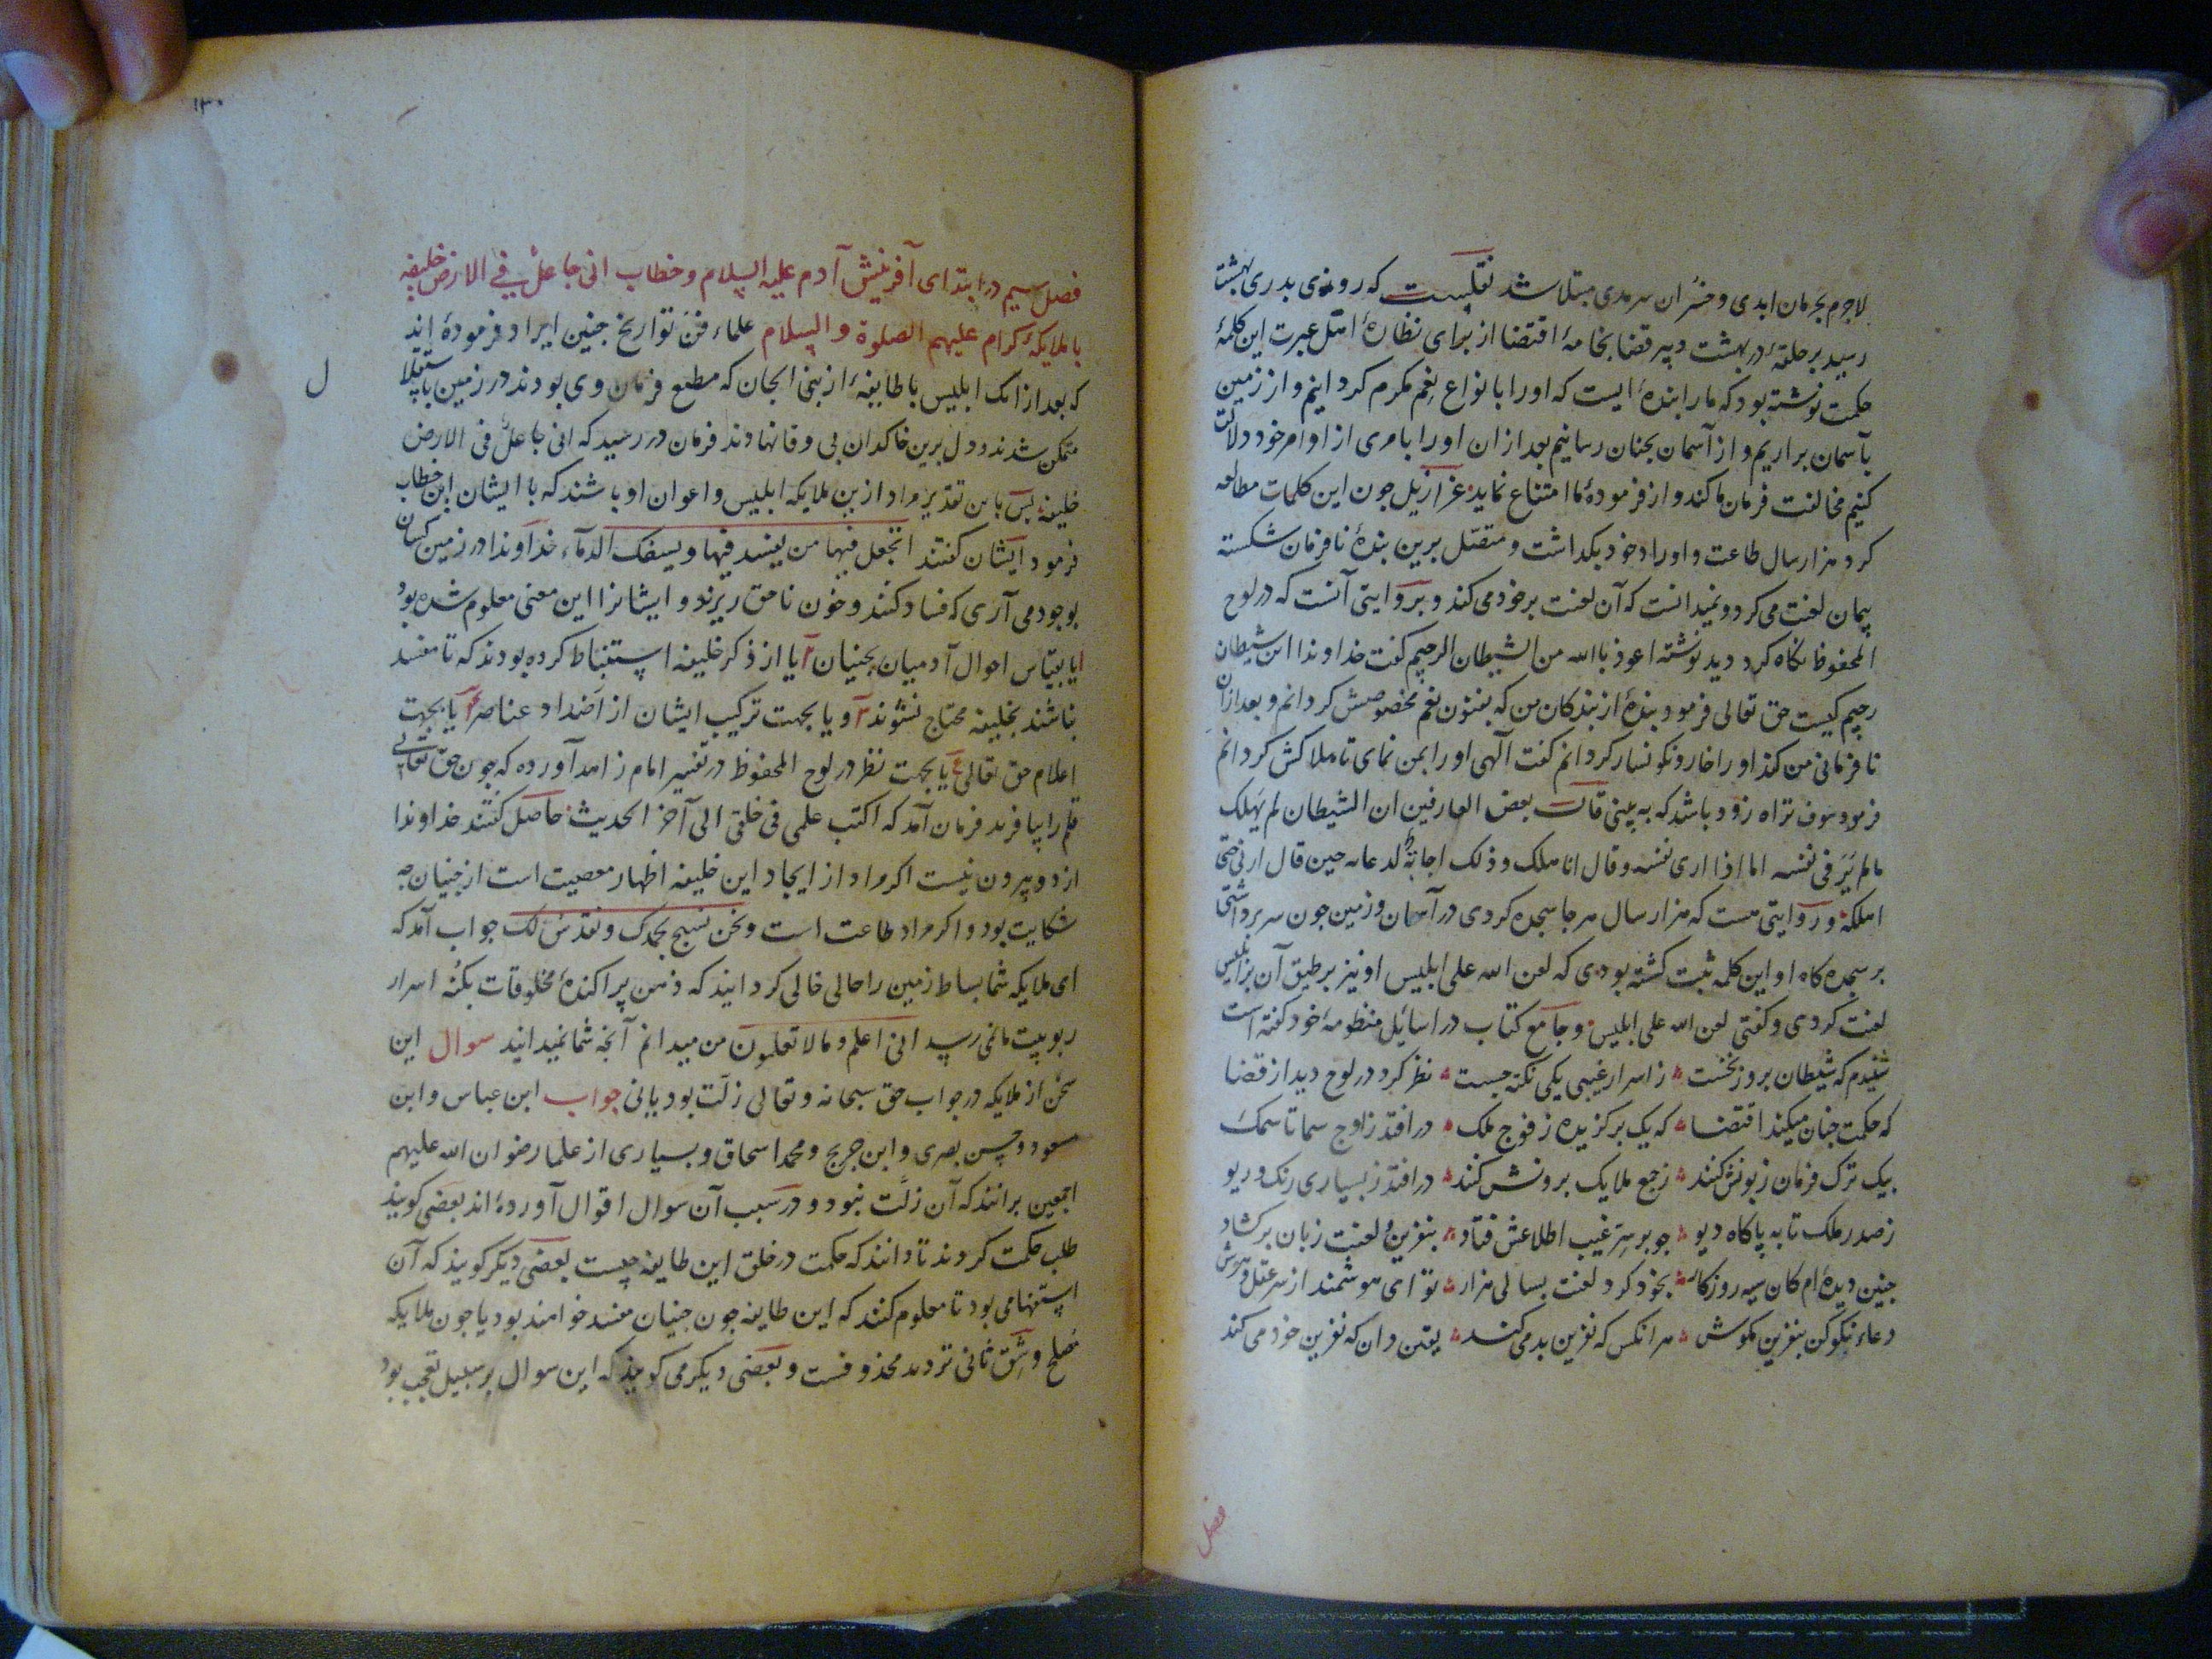 لاجرم بحرمان ابدی و خسران سرمدی مبتلا شد نقلیست که روزی بدری بهشت
رسید بر حلقهٔ در بهشت دبیر قضا بخامهٔ اقتضا از برای نظارهٔ اهل عبرت این کلمهٔ
حکمت نوشته بود که ما را بندهٔ ایست که او را بانواع نعم مکرم کردانیم و از زمین
بآسمان براریم و از آسمان بجنان رسانیم بعد از ان او را بامری از اوامر خود دلالت
کنیم مخالفت فرمان ما کند و از فرمودهٔ ما امتناع نماید عزازیل جون این کلمات مطالعه
کرد هزار سال طاعت و اوراد خود بکداشت و متصل برین بندهٔ نافرمان شکسته
پیمان لعنت می کرد و نمیدانست که آن لعنت بر خود می کند و بروایتی آنست که در لوح
المحفوظ نکاه کرد دید نوشته اعوذ بالله من الشیطان الرجیم کفت خداوندا این شیطان
رجیم کیست حق تعالی فرمود بندهٔ از بندکان من که بفنون نعم مخصوصش کردانم و بعد از ان
نافرمانی من کند او را خار و نکونسار کردانم کفت آلهی او را بمن نمای تا هلاکش کردانم
فرمود سوف تراه زود باشد که به بینی قالت بعض العارفین ان الشیطان لم یهلک
مالم یر فی نفسه اما اذا اری نفسه و قال انا هلک و ذلک اجابة لدعائه حین قال ارنی حتی
اهلکه و روایتی هست که هزار سال هر جا سجده کردی در آسمان و زمین جون سر برداشتی
بر سجده کاه او این کلمه ثبت کشته بودی که لعن الله علی ابلیس او نیز بر طبق آن بر ابلیس
لعنت کردی و کفتی لعن الله علی ابلیس و جامع کتاب در اسائیل منظومهٔ خود کفته است
شنیدم که شیطان بروز نخست ز اسرار غیبی یکی نکته جست نظر کرد در لوح دید از قضا
که حکمت جنان میکند اقتضا که یک برکزیده ز فوج ملک در افتد ز اوج سما تا سمک
بیک ترک فرمان زبونش کنند ز جمع ملایک برونش کنند در افتد ز بسیاری رنک و ریو
ز صدر ملک تا به پاکاه دیو جو بر سر غیب اطلاعش فتاد بنفرین و لعنت زبان برکشاد
جنین دیده ام کان سیه روزکار بخود کرد لعنت بسالی هزار تو ای هوشمند از سر عقل و هوش
دعاء نکو کن بنفرین مکوش هر انکس که نفرین بد می کند یقین دان که نفرین خود می کند
فصل
۱۳۰
فصل سیم در ابتدای آفرینش آدم علیه السلام و خطاب انی جاعل فی الارض خلیفه
با ملایکهٔ کرام علیهم الصلوة والسلام علماء فن تواریخ جنین ایراد فرمودهٔ اند
که بعد از انک ابلیس با طایفهٔ از بنی الجان که مطیع فرمان وی بودند در زمین باستقلال
متمکن شدند و دل برین خاکدان بی وفا نهادند فرمان در رسید که انی جاعل فی الارض
خلیفه بس باین تقدیر مراد ازین ملایکه ابلیس و اعوان او باشند که با ایشان این خطاب
فرمود ایشان کفتند اتجعل فیها من یفسد فیها و یسفک الدمآء خداوندا در زمین کسان
بوجود می آری که فساد کنند و خون ناحق ریزند و ایشانرا این معنی معلوم شده بود
ایا بقیاس احوال آدمیان بجنیان آیا از ذکر خلیفه استنباط کرده بودند که تا مفسد
نباشند بخلیفه محتاج نشوند و یا بجهت ترکیب ایشان از اضداد عناصر آیا بجهت
اعلام حق تعالی یا بجهت نظر در لوح المحفوظ در تفسیر امام زاهد آورده که جون حق تعالی
قلم را بیافرید فرمان آمد که اکتب علمی فی خلقی الی آخر الحدیث حاصل کفتند خداوندا
از دو بیرون نیست اکر مراد از ایجاد این خلیفه اظهار معصیت است از جنیان جه
شکایت بود و اکر مراد طاعت است و نحن نسبح بحمدک و نقدس لک جواب آمد که
ای ملایکه شما بساط زمین را حالی خالی کردانید که ذهن پراکندهٔ مخلوقات بکنه اسرار
ربوبیت ما نمی رسد انی اعلم و ما لا تعلمون من میدانم آنجه شما نمیدانید سوال این
سخن از ملایکه در جواب حق سبحانه و تعالی زلت بود یا نی جواب ابن عباس و ابن
مسعود و حسن بصری و ابن جریج و محمد اسحاق و بسیاری از علما رضوان الله علیهم
اجمعین برانند که آن زلت نبود و در سبب آن سوال اقوال آورده اند بعضی کویند
طلب حکمت کردند تا دانند که حکمت در خلق این طایفه چیست بعضی دیکر کویند که آن
استفهامی بود تا معلوم کنند که این طایفه جون جنیان مفسد خواهند بود یا جون ملایکه
مصلح و شق ثانی تردید محذوفست و بعضی دیکر می کویند که این سوال بر سبیل تعجب بود